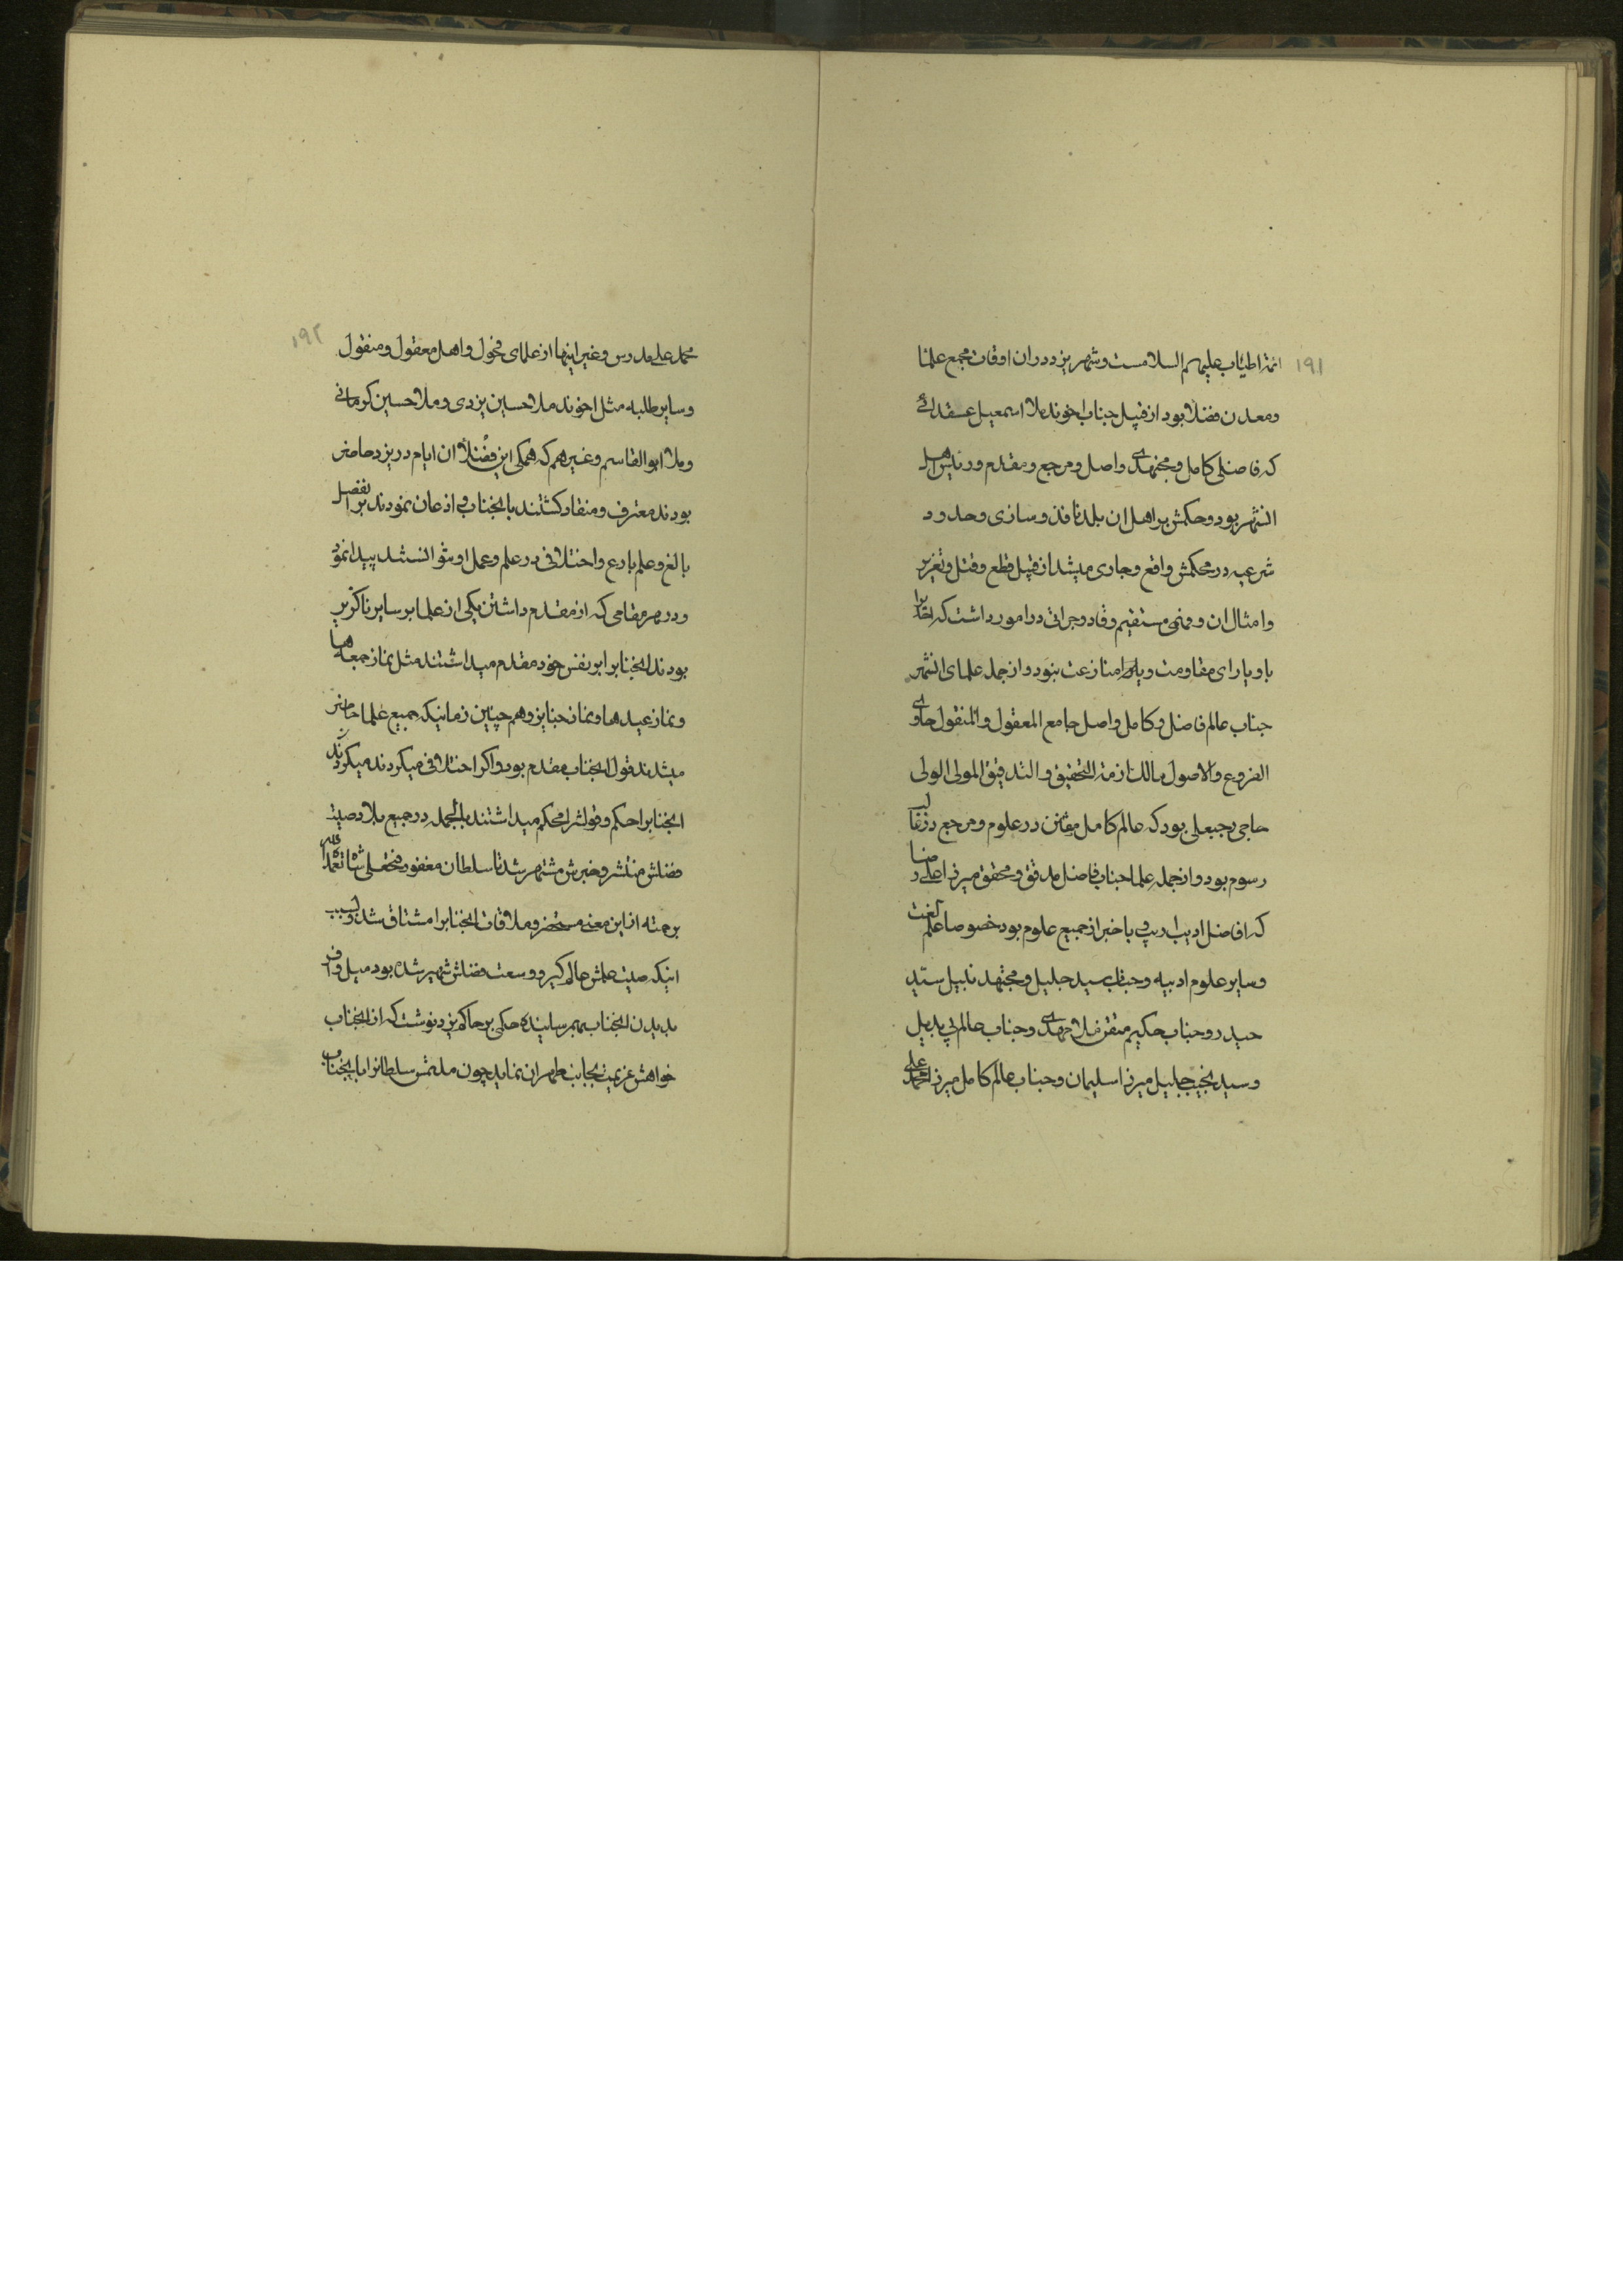 ۱۹۱
ائمه اطیاب علیهم السلامست و شهر یزد دران اوقات مجمع علما
و معدن فضلا بود از قبیل جناب اخوند ملا اسمعیل عقدائی
که فاضلی کامل و مجتهدی واصل و مرجع و مقدم و رئیس اهل
انشهر بود و حکمش بر اهل ان بلد نافذ و ساری و حدود
شرعیه در محکمش واقع و جاری میشد از قبیل قطع و قتل و تعزیر
و امثال ان و فهمی مستقیم و قاد و جراتی در امور داشت که احدیرا
با او یارای مقاومت و یا منازعت نبود و از جمله علمای انشهر
جناب عالم فاضل و کامل واصل جامع المعقول و المنقول حاوی
الفروع والاصول مالک ازمة التحقیق و التدقیق المولی الولی
حاجی رجبعلی بود که عالم کامل مقنن در علوم و مرجع در غالب
رسوم بود و از جمله علما جناب فاضل مدقق و محقق میرزا علی رضا
که افاضل ادیب اریب و با خبر از جمیع علوم بود خصوصا علم لغت
و سایر علوم ادبیه و جناب سید جلیل و مجتهد نبیل سید
حیدر و جناب حکیم متقن ملا مهدی و جناب عالم بی بدیل
و سید نجیب جلیل میرزا سلیمان و جناب عالم کامل میرزا محمد علی
۱۹۲
محمد علی مدرس و غیر اینها از علمای فحول و اهل معقول و منقول
و سایر طلبه مثل اخوند ملا حسین یزدی و ملا حسین کرمانی
و ملا ابو القاسم و غیرهم که همگی این فضلا ان ایام در یزد حاضر
بودند معترف و منقاد کشتند بانجناب و اذعان نمودند بر فضل
بالغ و علم بارع و اختلافی در علم و عمل او نتوانستند پیدا نمود
و در هر مقامی که از مقدم داشتن یکی از علما بر سایر ناکزیر
بودند انجنابرا بر نفس خود مقدم میداشتند مثل نماز جمعه ها
و نماز عیدها و نماز جنایز و هم چنین زمانیکه جمیع علما حاضر
میشدند قول انجناب مقدم بود و اکر اختلافی میکردند میکردند
انجنابرا حکم و قولشرا محکم میداشتند بالجمله در جمیع بلاد صیت
فضلش منتشر و خبرش مشتهر شد تا سلطان مغفور فتحعلی شاه تغمده الله
برحمته از این معنی مستحضر و ملاقات انجنابرا مشتاق شد و بسبب
اینکه صیت علمش عالم کیر و وسعت فضلش شهیر شده بود میل وافر
بدیدن انجناب بهمرسانیده حکمی بر حاکم یزد نوشت که از انجناب
خواهش عزیمت بجانب طهران نماید چون ملتمس سلطانرا بانجناب